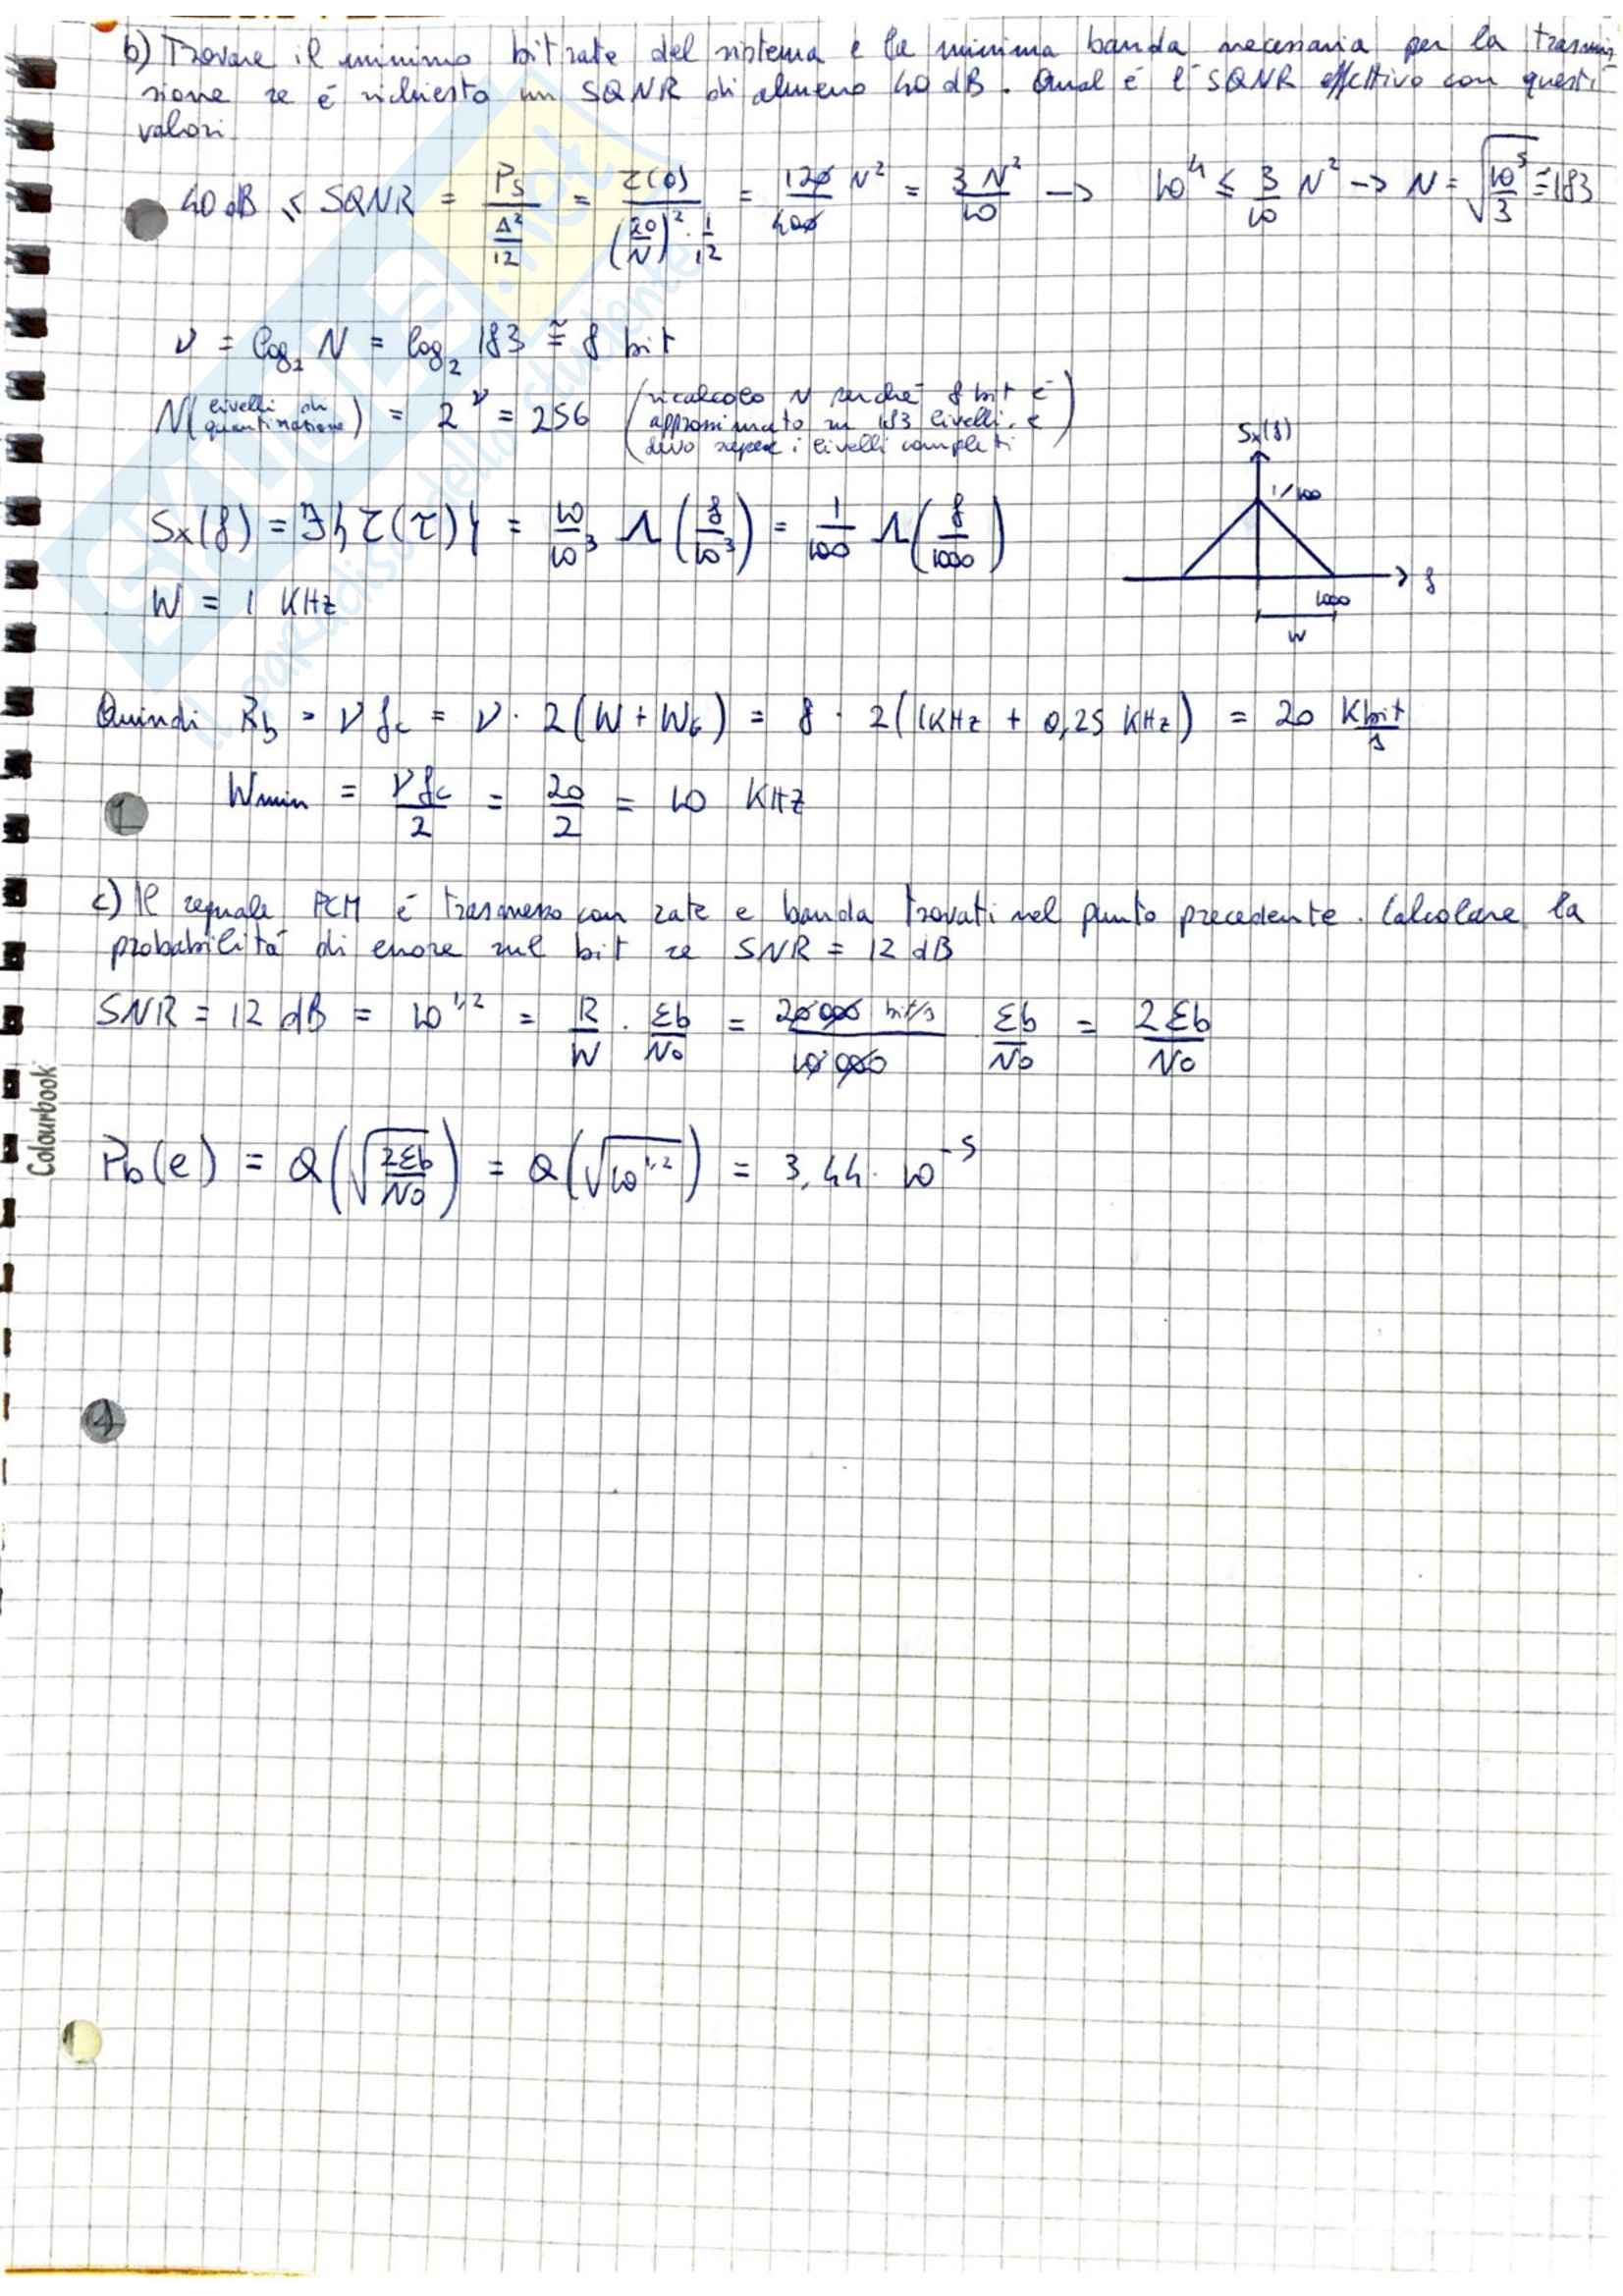 b) Trovare il minimo bit rate del sistema e la minima banda necessaria per la trasmis
sione se é richiesto un SQNR di almeno 40 dB. Qual é l'SQNR effettivo con questi
valori.
40 dB ≤ SQNR = Ps / (Δ²/12) = r(0) / ((20/N)² · 1/12) = 120 N² / 400 = 3N²/10 → 10⁴ ≤ 3/10 N² → N = √(10⁵/3) ≅ 183
ν = log₂ N = log₂ 183 ≅ 8 bit
N (livelli di quantizzazione) = 2^ν = 256 (ricalcolo N perché 8 bit é approssimato su 183 livelli, e devo sapere i livelli completi)
Sx(f)
1/100
Sx(f) = F{r(τ)} = 10/10³ Λ(f/10³) = 1/100 Λ(f/1000)
f
1000
W = 1 KHz
W
Quindi Rb = ν fc = ν · 2(W + WG) = 8 · 2(1KHz + 0,25 KHz) = 20 Kbit/s
Wmin = ν fc / 2 = 20/2 = 10 KHz
c) Il segnale PCM é trasmesso con rate e banda trovati nel punto precedente. Calcolare la
probabilitá di errore sul bit se SNR = 12 dB
SNR = 12 dB = 10^1,2 = R/W · Eb/No = 20000 bit/s / 10000 Eb/No = 2Eb/No
Pb(e) = Q(√(2Eb/No)) = Q(√(10^1,2)) = 3,44 · 10^-5
Colourbook
SKUOLA.net
il paradiso dello studente